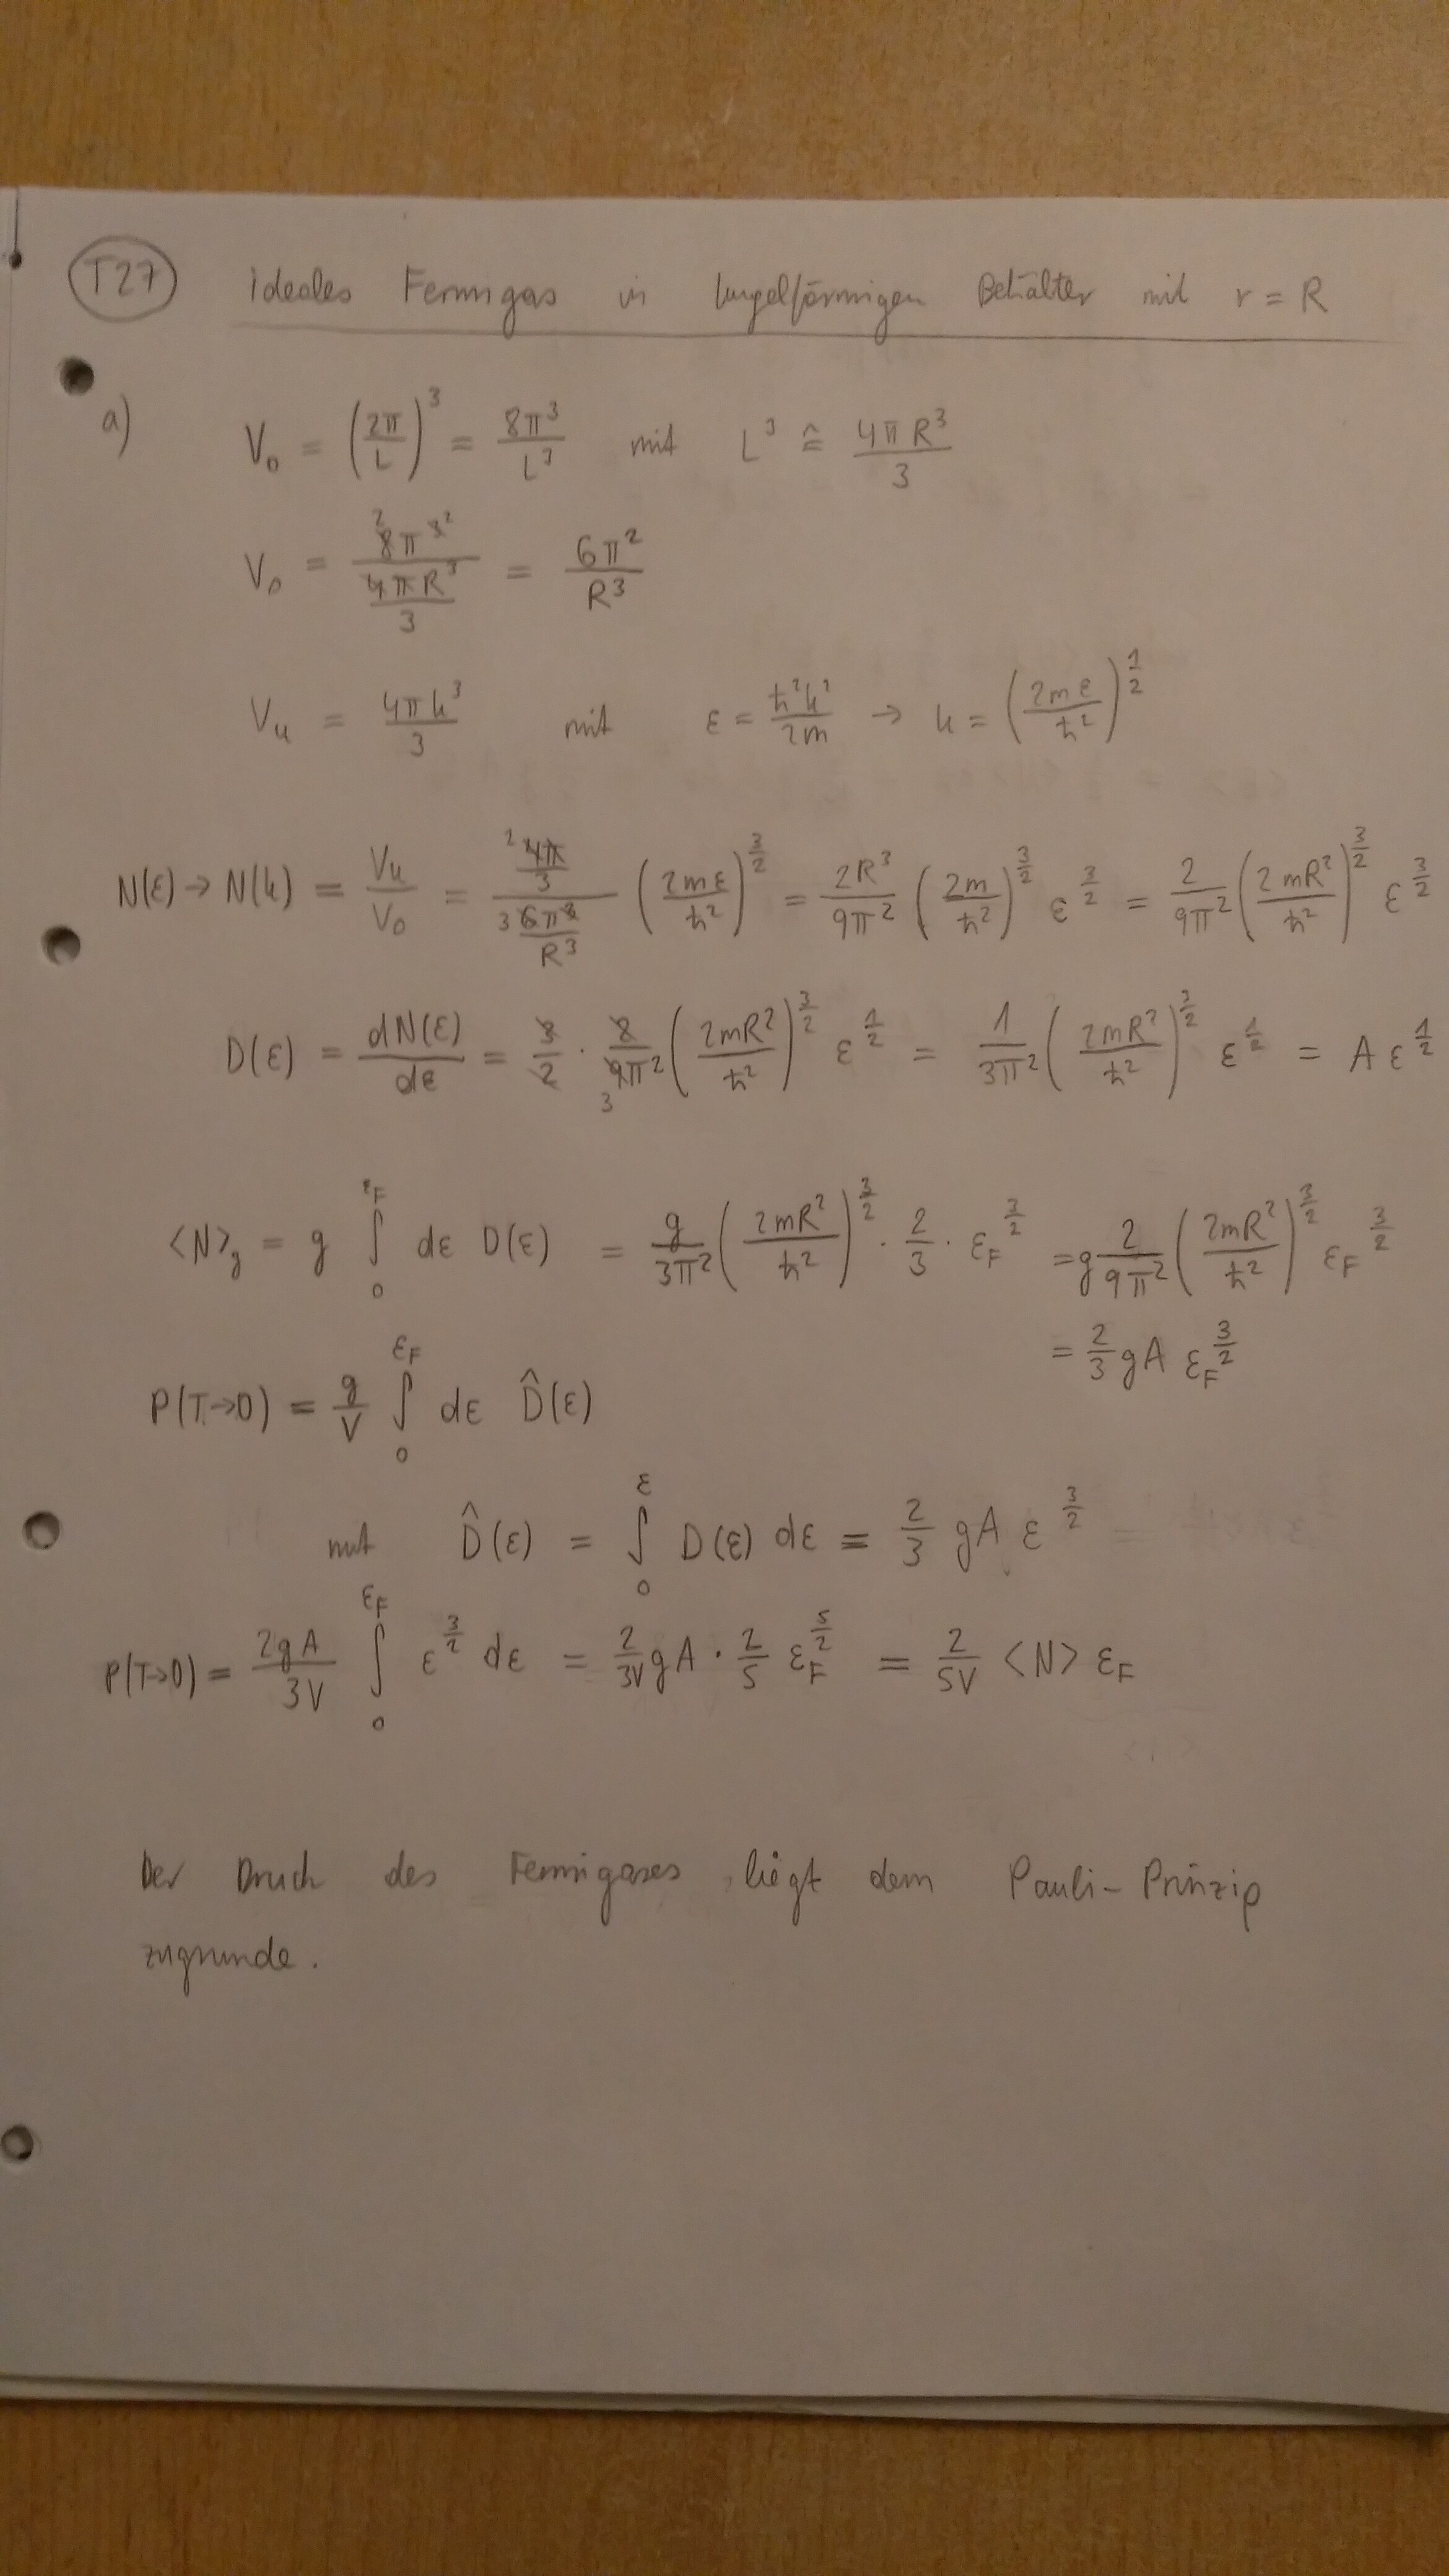 T27 ideales Fermigas in kugelförmigen Behälter mit r = R
a) V₀ = (2π/L)³ = 8π³/L³ mit L³ ≙ 4πR³/3
V₀ = 8π³/(4πR³/3) = 6π²/R³
Vₖ = 4πk³/3 mit ε = ħ²k²/2m → k = (2mε/ħ²)^(1/2)
N(ε) → N(k) = Vₖ/V₀ = (4π/3)/(6π²/R³) (2mε/ħ²)^(3/2) = 2R³/9π² (2m/ħ²)^(3/2) ε^(3/2) = 2/9π² (2mR²/ħ²)^(3/2) ε^(3/2)
D(ε) = dN(ε)/dε = 3/2 · 2/9π² (2mR²/ħ²)^(3/2) ε^(1/2) = 1/3π² (2mR²/ħ²)^(3/2) ε^(1/2) = A ε^(1/2)
⟨N⟩_g = g ∫₀^(ε_F) dε D(ε) = g/3π² (2mR²/ħ²)^(3/2) · 2/3 · ε_F^(3/2) = g 2/9π² (2mR²/ħ²)^(3/2) ε_F^(3/2)
= 2/3 gA ε_F^(3/2)
P(T→0) = g/V ∫₀^(ε_F) dε D̂(ε)
mit D̂(ε) = ∫₀^ε D(ε) dε = 2/3 gA ε^(3/2)
P(T→0) = 2gA/3V ∫₀^(ε_F) ε^(3/2) dε = 2/3V gA · 2/5 ε_F^(5/2) = 2/5V ⟨N⟩ ε_F
Der Druck des Fermigases liegt dem Pauli-Prinzip
zugrunde.